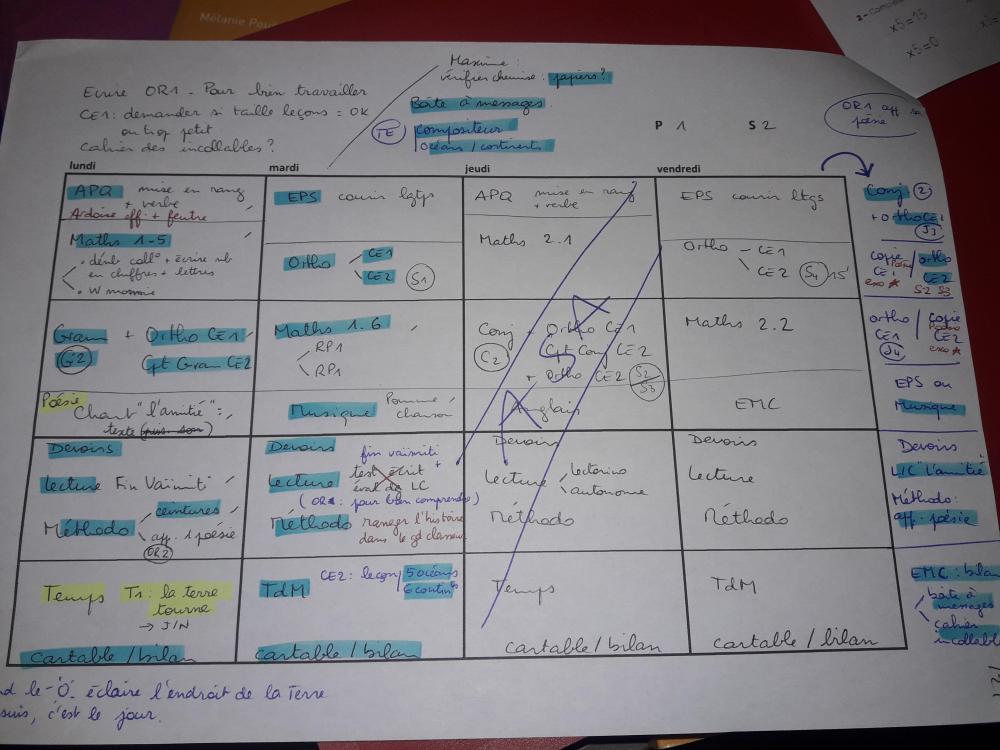 Mélanie
x5=15
x5=0
Ecrire OR1 - Pour bien travailler
CE1: demander si taille leçons = OK
ou trop petit
Cahier des incollables ?
Maxime :
vérifier chemise : papiers ?
Boîte à messages
TE compositeur
océans / continents
P 1 S 2
OR1 aff sa
poésie
lundi mardi jeudi vendredi
APQ mise en rang
+ verbe
Ardoise eff. + feutre
EPS courir lgtps
APQ mise en rang
+ verbe
EPS courir ltgs
Conj 2
+ ortho CE1
S3
Maths 1-5
dénb coll° + écrire nb
en chiffres + lettres
W monnaie
Ortho CE1
CE2 S1
Maths 2.1
Ortho - CE1
CE2 S4 15'
copie / ortho
CE1 CE2
exo * S2 S3
Gram + Ortho CE1
G2 Cpt Gram CE2
Maths 1.6
RP1
RP1
Conj + Ortho CE1
C2 Cpt Conj CE2
+ Ortho CE2 S2
S3
Maths 2.2
ortho / copie
CE1 CE2
S4 exo *
Poésie
Chant "l'amitié" :
texte (puis son)
Musique Pomme
chanson
Anglais
EMC
EPS ou
Musique
Devoirs
lecture Fin Vaïmiti
Méthodo ceintures
aff. 1 poésie
OR2
Devoirs fin vaïmiti
lecture test écrit +
éval de LC
(OR1 : pour bien comprendre)
Méthodo ranger l'histoire
dans le gd classeur
Devoirs
lecture lectorino
autonome
Méthodo
Devoirs
lecture
Méthodo
Devoirs
LIC "l'amitié"
Méthodo :
aff. poésie
Temps T1 : la terre
tourne
→ J/N
cartable / bilan
TdM CE2 : leçon 5 océans
6 contin ts
cartable / bilan
Temps
cartable / bilan
TdM
cartable / bilan
EMC : bilan
boîte à
messages
cahier
incollables
le éclaire l'endroit de la Terre
suis, c'est le jour.